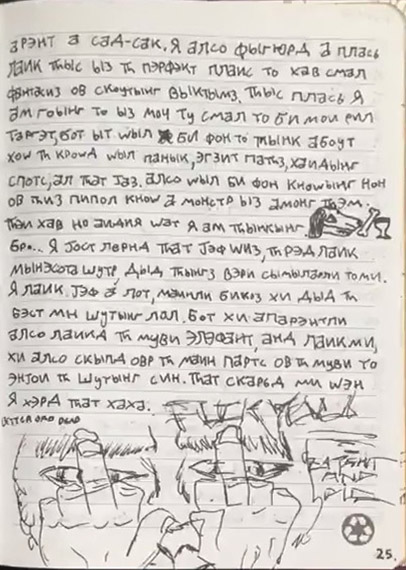 арэнт а сад-сак. Я алсо фыгюрд а плась
лаик тhыс ыз тh пэрфэкт плаис то хав смал
фантаиз ов скоутынг выктымз, тhыс плась я
ам гоынг то ыз моч ту смал то би мои рил
таргэт, бот ыт wыл би фон то тhынк абоут
хоw тh кроwд wыл паньк, эгзит патhз, хаидынг
спотс, ал тhат джаз. алсо wыл би фон кноwынг нон
ов тhиз пипол кноw а монстр ыз амонг тhэм.
тhэи хав но аидиа wат я ам тhынкынг.
Бро... Я джост лорнд тhат Джэф wиз, тh рэд лаик
мынэсота шутр, дыд тhынгз вэри сымыларли то ми.
Я лаик Джэф а лот, маинли бикоз хи дыд тh
бэст мн шутынг лол. Бот хи апарэнтли
алсо лаикд тh муви элэфант, анд лаик ми,
хи алсо скыпд овр тh маин партс ов тh муви то
энджои тh шутынг син. тhат скарьд ми wэн
я хэрд тhат хаха.
BETTER OFF DEAD
25.